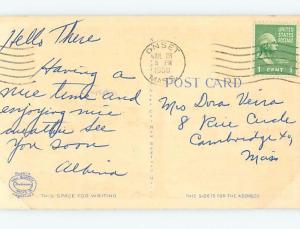 Hello There
Having a
nice time and
enjoying nice
weather see
you soon
Albina
THIS SPACE FOR WRITING
ONSET
5 PM
MASS.
UNITED STATES POSTAGE
1 CENT 1
POST CARD
Mrs Dora Vieira
8 Rice Circle
Cambridge
Mass
THIS SIDE IS FOR THE ADDRESS